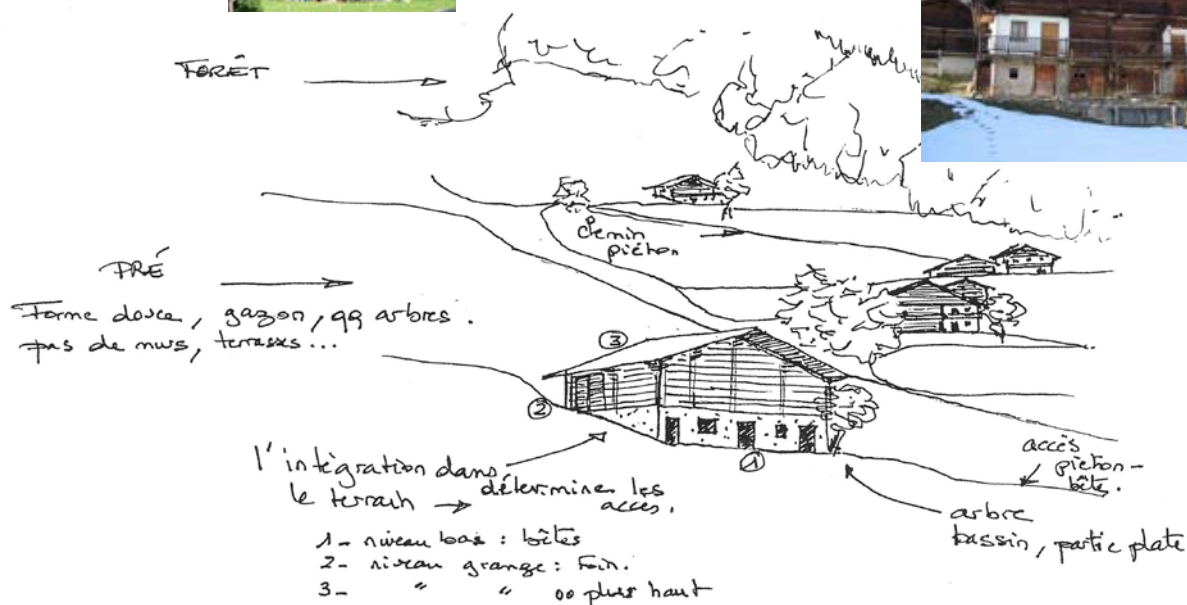 FORÊT
chemin
piéton
PRÉ
Forme douce, gazon, qq arbres.
pas de murs, terrasses...
3
2
1
l'intégration dans
le terrain → détermine les
accès.
accès
piéton-
bête.
arbre
bassin, partie plate
1- niveau bas : bêtes
2- niveau grange : Foin.
3- " " plus haut